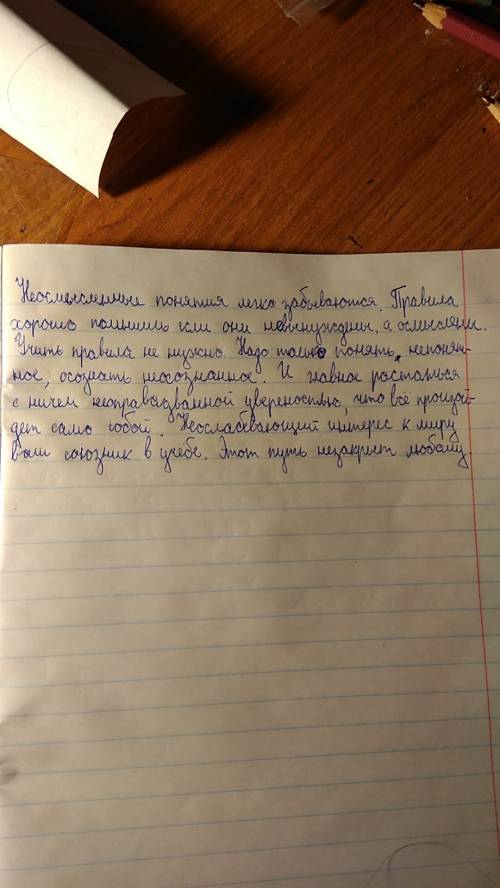 Неосмысленные понятия легко забываются. Правила
хорошо помнишь если они невынуждены, а осмыслены.
Учить правила не нужно. Надо только понять, непонят-
ное, осознать неосознанное. И главное расстаться
с ничем неоправдванной увереностью, что всё произой-
дет само собой. Неослабевающий интерес к миру
ваш союзник в учёбе. Этот путь незакрыт любому.